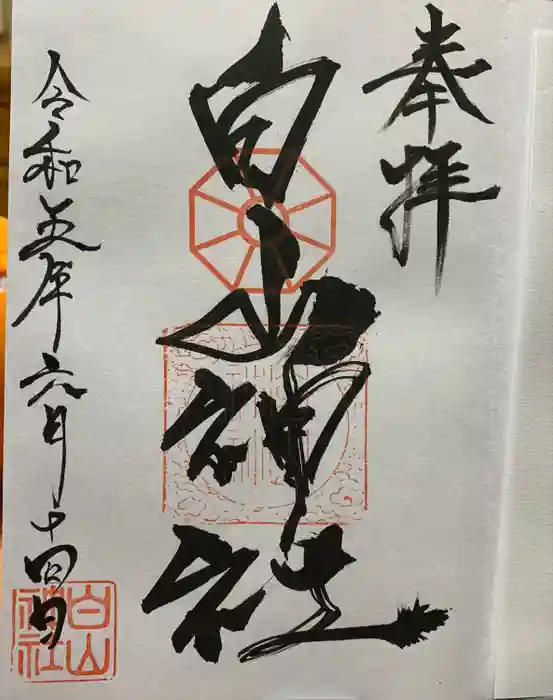 奉拝
白山神社
令和五年六月十四日
白山神社